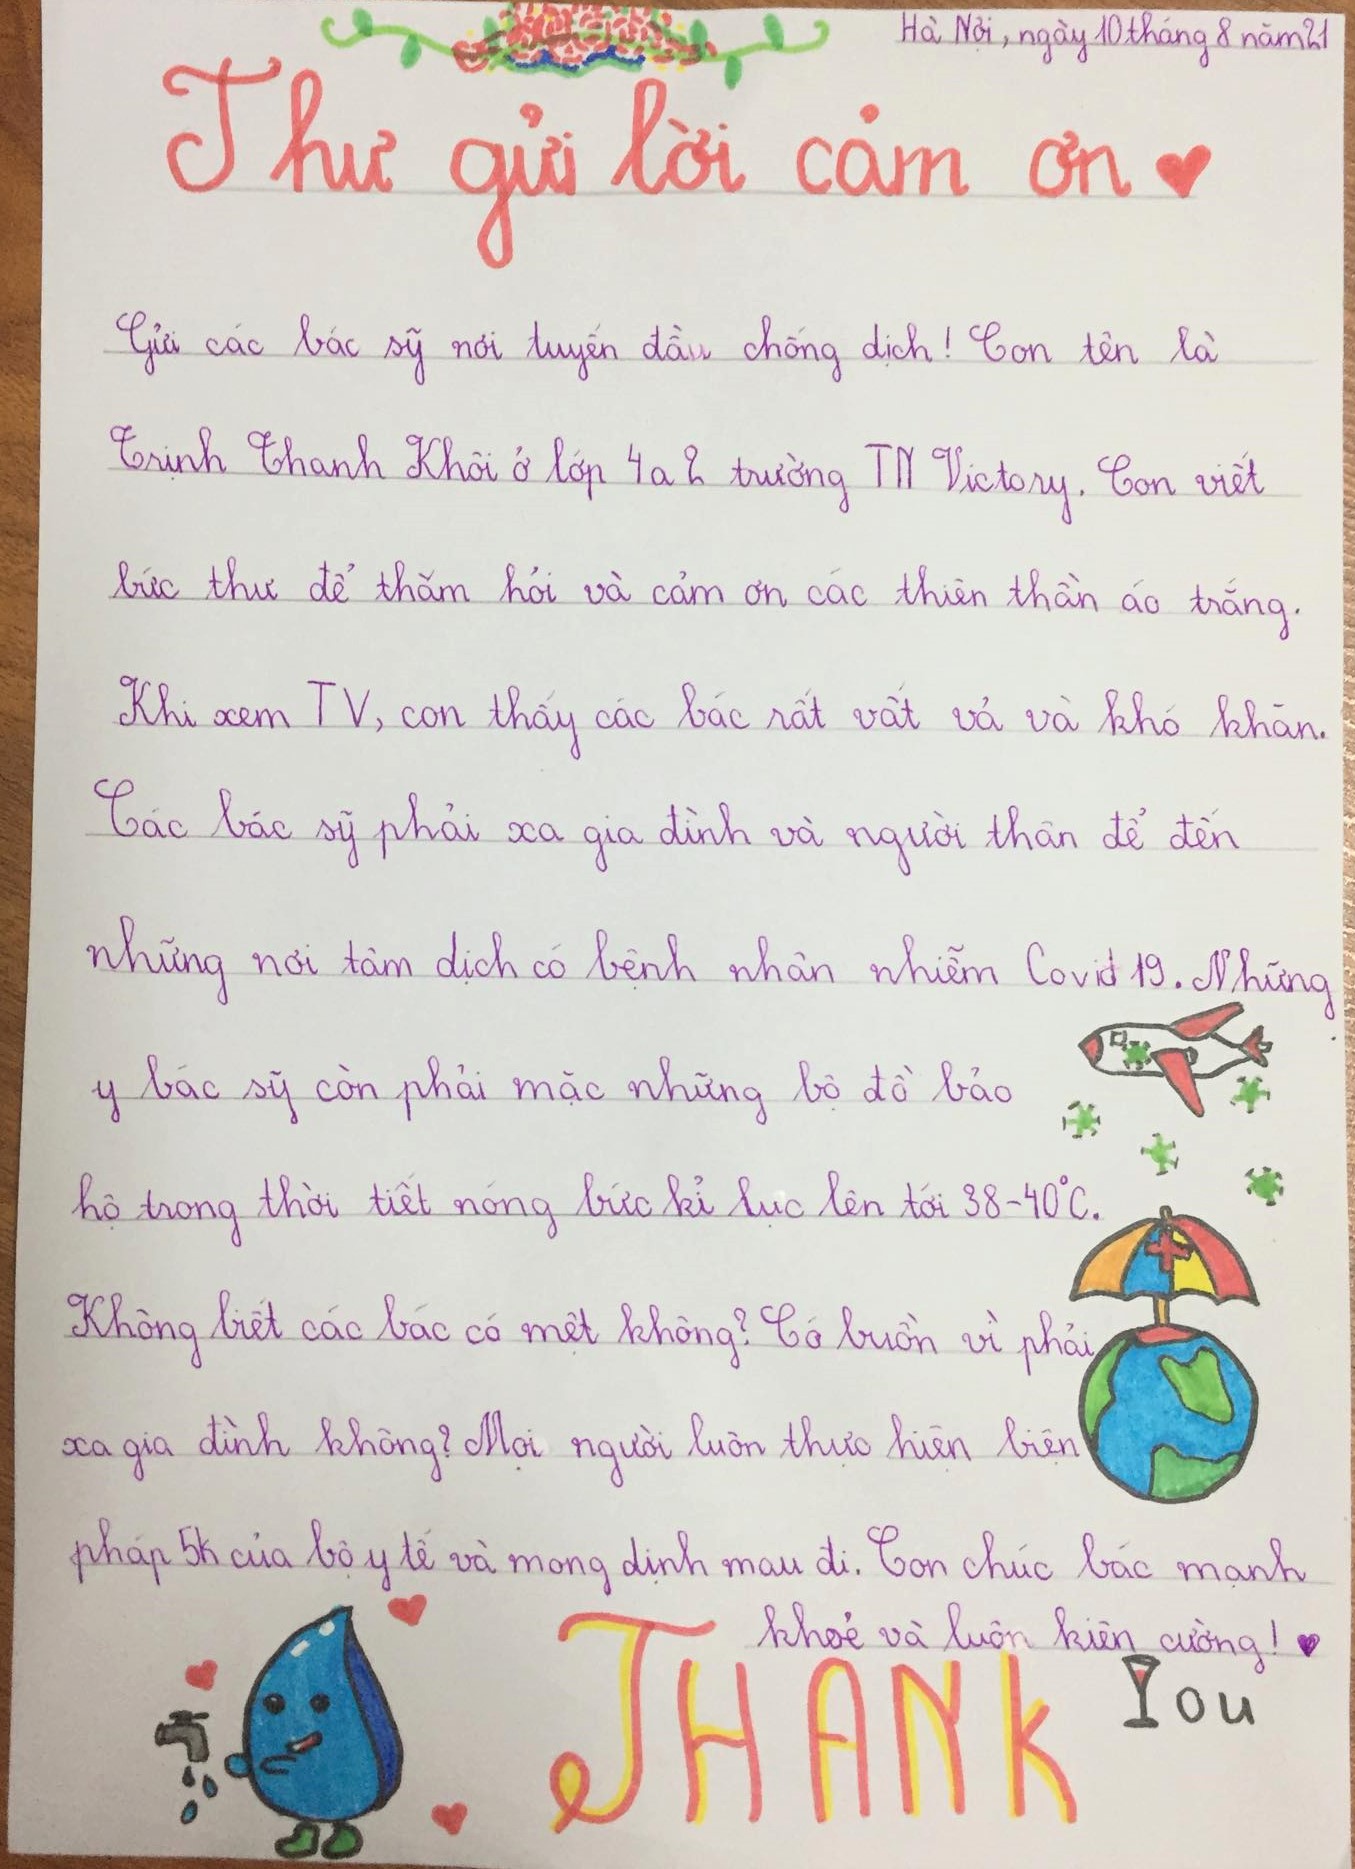 Hà Nội, ngày 10 tháng 8 năm 21
Thư gửi lời cảm ơn
Gửi các bác sỹ nơi tuyến đầu chống dịch! Con tên là
Trịnh Thanh Khôi ở lớp 4a2 trường TN Victory. Con viết
bức thư để thăm hỏi và cảm ơn các thiên thần áo trắng.
Khi xem TV, con thấy các bác rất vất vả và khó khăn.
Các bác sỹ phải xa gia đình và người thân để đến
những nơi tâm dịch có bệnh nhân nhiễm Covid 19. Những
y bác sỹ còn phải mặc những bộ đồ bảo
hộ trong thời tiết nóng bức kỉ lục lên tới 38-40°C.
Không biết các bác có mệt không? Có buồn vì phải
xa gia đình không? Mọi người luôn thực hiện biện
pháp 5k của bộ y tế và mong dịnh mau đi. Con chúc bác mạnh
khoẻ và luôn kiên cường!
THANK You